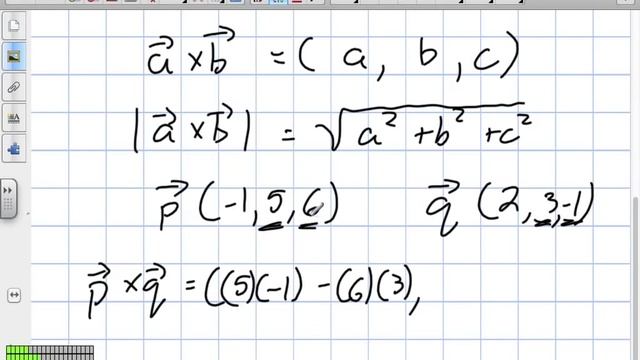 a⃗ × b⃗ = ( a , b , c )
|a⃗ × b⃗| = √(a² + b² + c²)
p⃗ (-1, 5, 6) q⃗ (2, 3, -1)
p⃗ × q⃗ = ((5)(-1) - (6)(3),